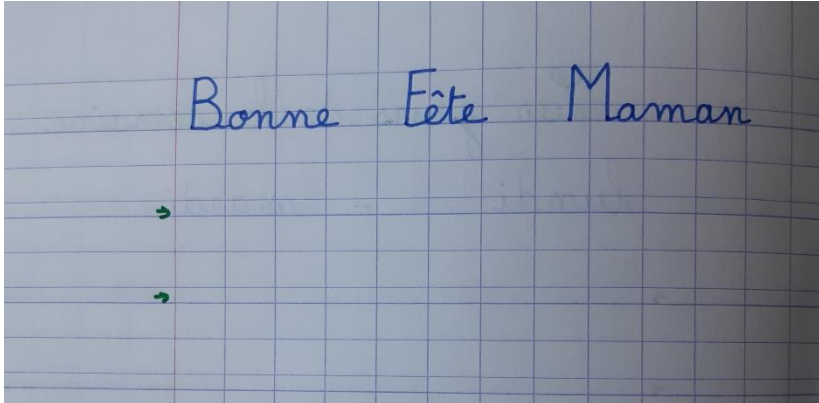 Bonne Fête Maman